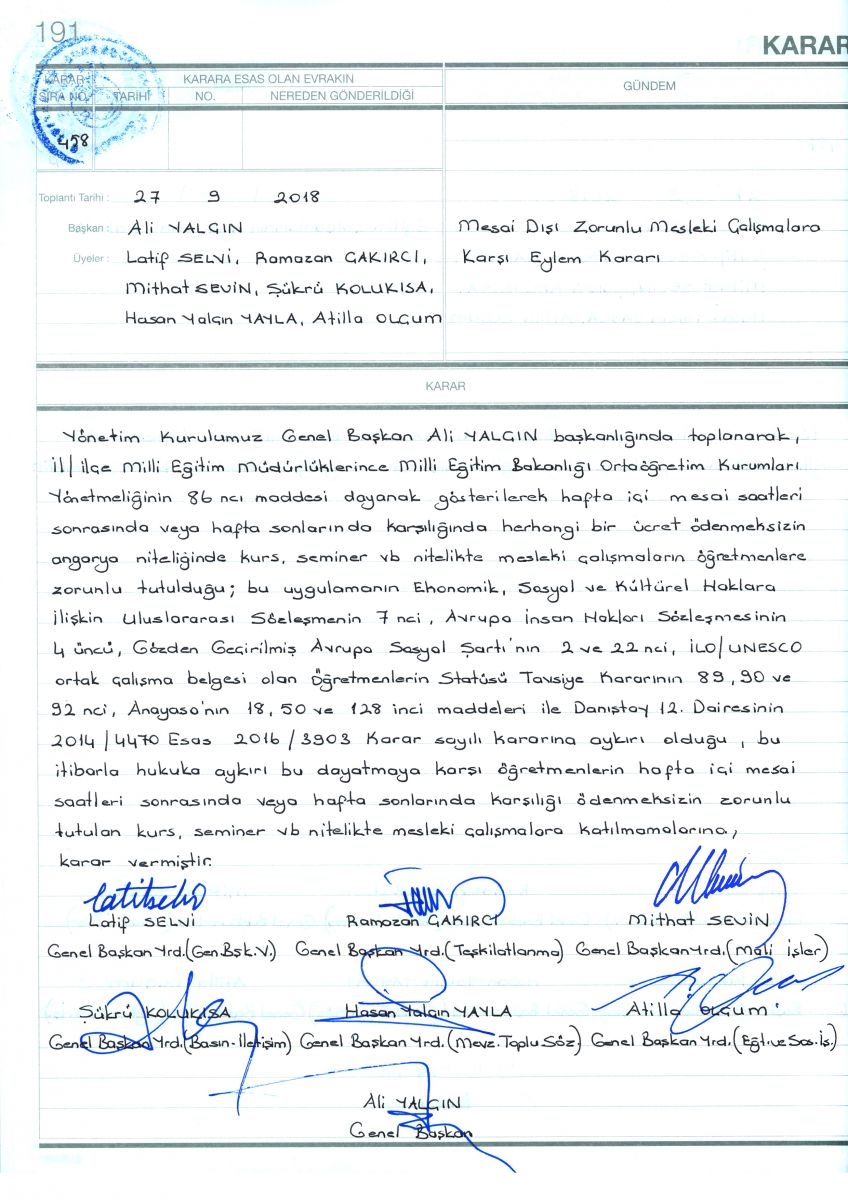 191
KARAR
KARAR
SIRA NO.
KARARA ESAS OLAN EVRAKIN
TARİHİ NO. NEREDEN GÖNDERİLDİĞİ
GÜNDEM
458
Toplantı Tarihi : 27 / 9 / 2018
Başkan : Ali YALÇIN
Üyeler : Latif SELVİ, Ramazan ÇAKIRCI,
Mithat SEVİN, Şükrü KOLUKISA,
Hasan Yalçın YAYLA, Atilla OLÇUM
Mesai Dışı Zorunlu Mesleki Çalışmalara
Karşı Eylem Kararı
KARAR
Yönetim Kurulumuz Genel Başkan Ali YALÇIN başkanlığında toplanarak,
İl/İlçe Milli Eğitim Müdürlüklerince Milli Eğitim Bakanlığı Ortaöğretim Kurumları
Yönetmeliğinin 86 ncı maddesi dayanak gösterilerek hafta içi mesai saatleri
sonrasında veya hafta sonlarında karşılığında herhangi bir ücret ödenmeksizin
angarya niteliğinde kurs, seminer vb nitelikte mesleki çalışmaların öğretmenlere
zorunlu tutulduğu; bu uygulamanın Ekonomik, Sosyal ve Kültürel Haklara
İlişkin Uluslararası Sözleşmenin 7 nci, Avrupa İnsan Hakları Sözleşmesinin
4 üncü, Gözden Geçirilmiş Avrupa Sosyal Şartı'nın 2 ve 22 nci, İLO/UNESCO
ortak çalışma belgesi olan Öğretmenlerin Statüsü Tavsiye Kararının 89, 90 ve
92 nci, Anayasa'nın 18, 50 ve 128 inci maddeleri ile Danıştay 12. Dairesinin
2014/4470 Esas 2016/3903 Karar sayılı kararına aykırı olduğu, bu
itibarla hukuka aykırı bu dayatmaya karşı öğretmenlerin hafta içi mesai
saatleri sonrasında veya hafta sonlarında karşılığı ödenmeksizin zorunlu
tutulan kurs, seminer vb nitelikte mesleki çalışmalara katılmamalarına,
karar vermiştir.
Latif SELVİ Ramazan ÇAKIRCI Mithat SEVİN
Genel Başkan Yrd.(Gen.Bşk.V.) Genel Başkan Yrd.(Teşkilatlanma) Genel Başkan Yrd.(Mali İşler)
Şükrü KOLUKISA Hasan Yalçın YAYLA Atilla OLÇUM
Genel Başkan Yrd.(Basın-İletişim) Genel Başkan Yrd.(Mevz.Toplu Söz.) Genel Başkan Yrd.(Eğt.ve Sos.İş.)
Ali YALÇIN
Genel Başkan